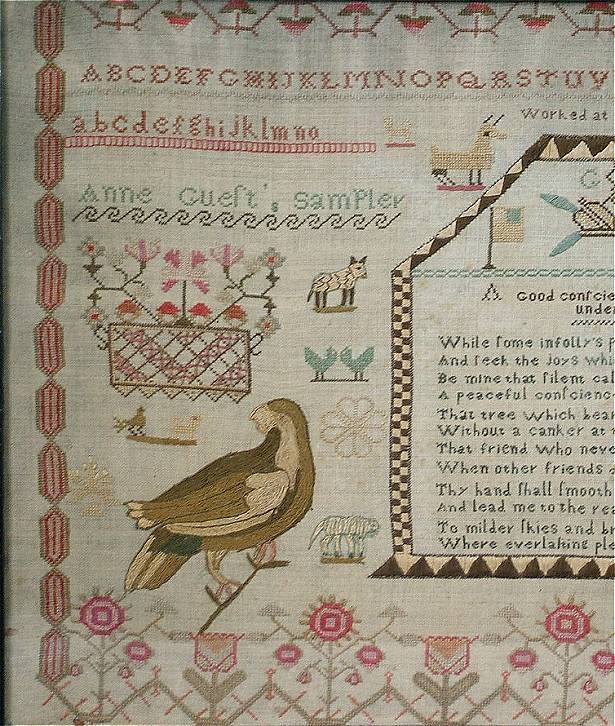 ABCDEFGHIJKLMNOPQRSTUV
Worked at
abcdefghijklmno
Anne Gueſt's sampler
G
A Good conſcie
under
While ſome in folly's p
And ſeek the Joys whi
Be mine that ſilent cal
A peaceful conſcienc
That tree which bear
Without a canker at
That friend who neve
When other friends a
Thy hand ſhall ſmooth
And lead me to the rea
To milder ſkies and br
Where everlaſting ple